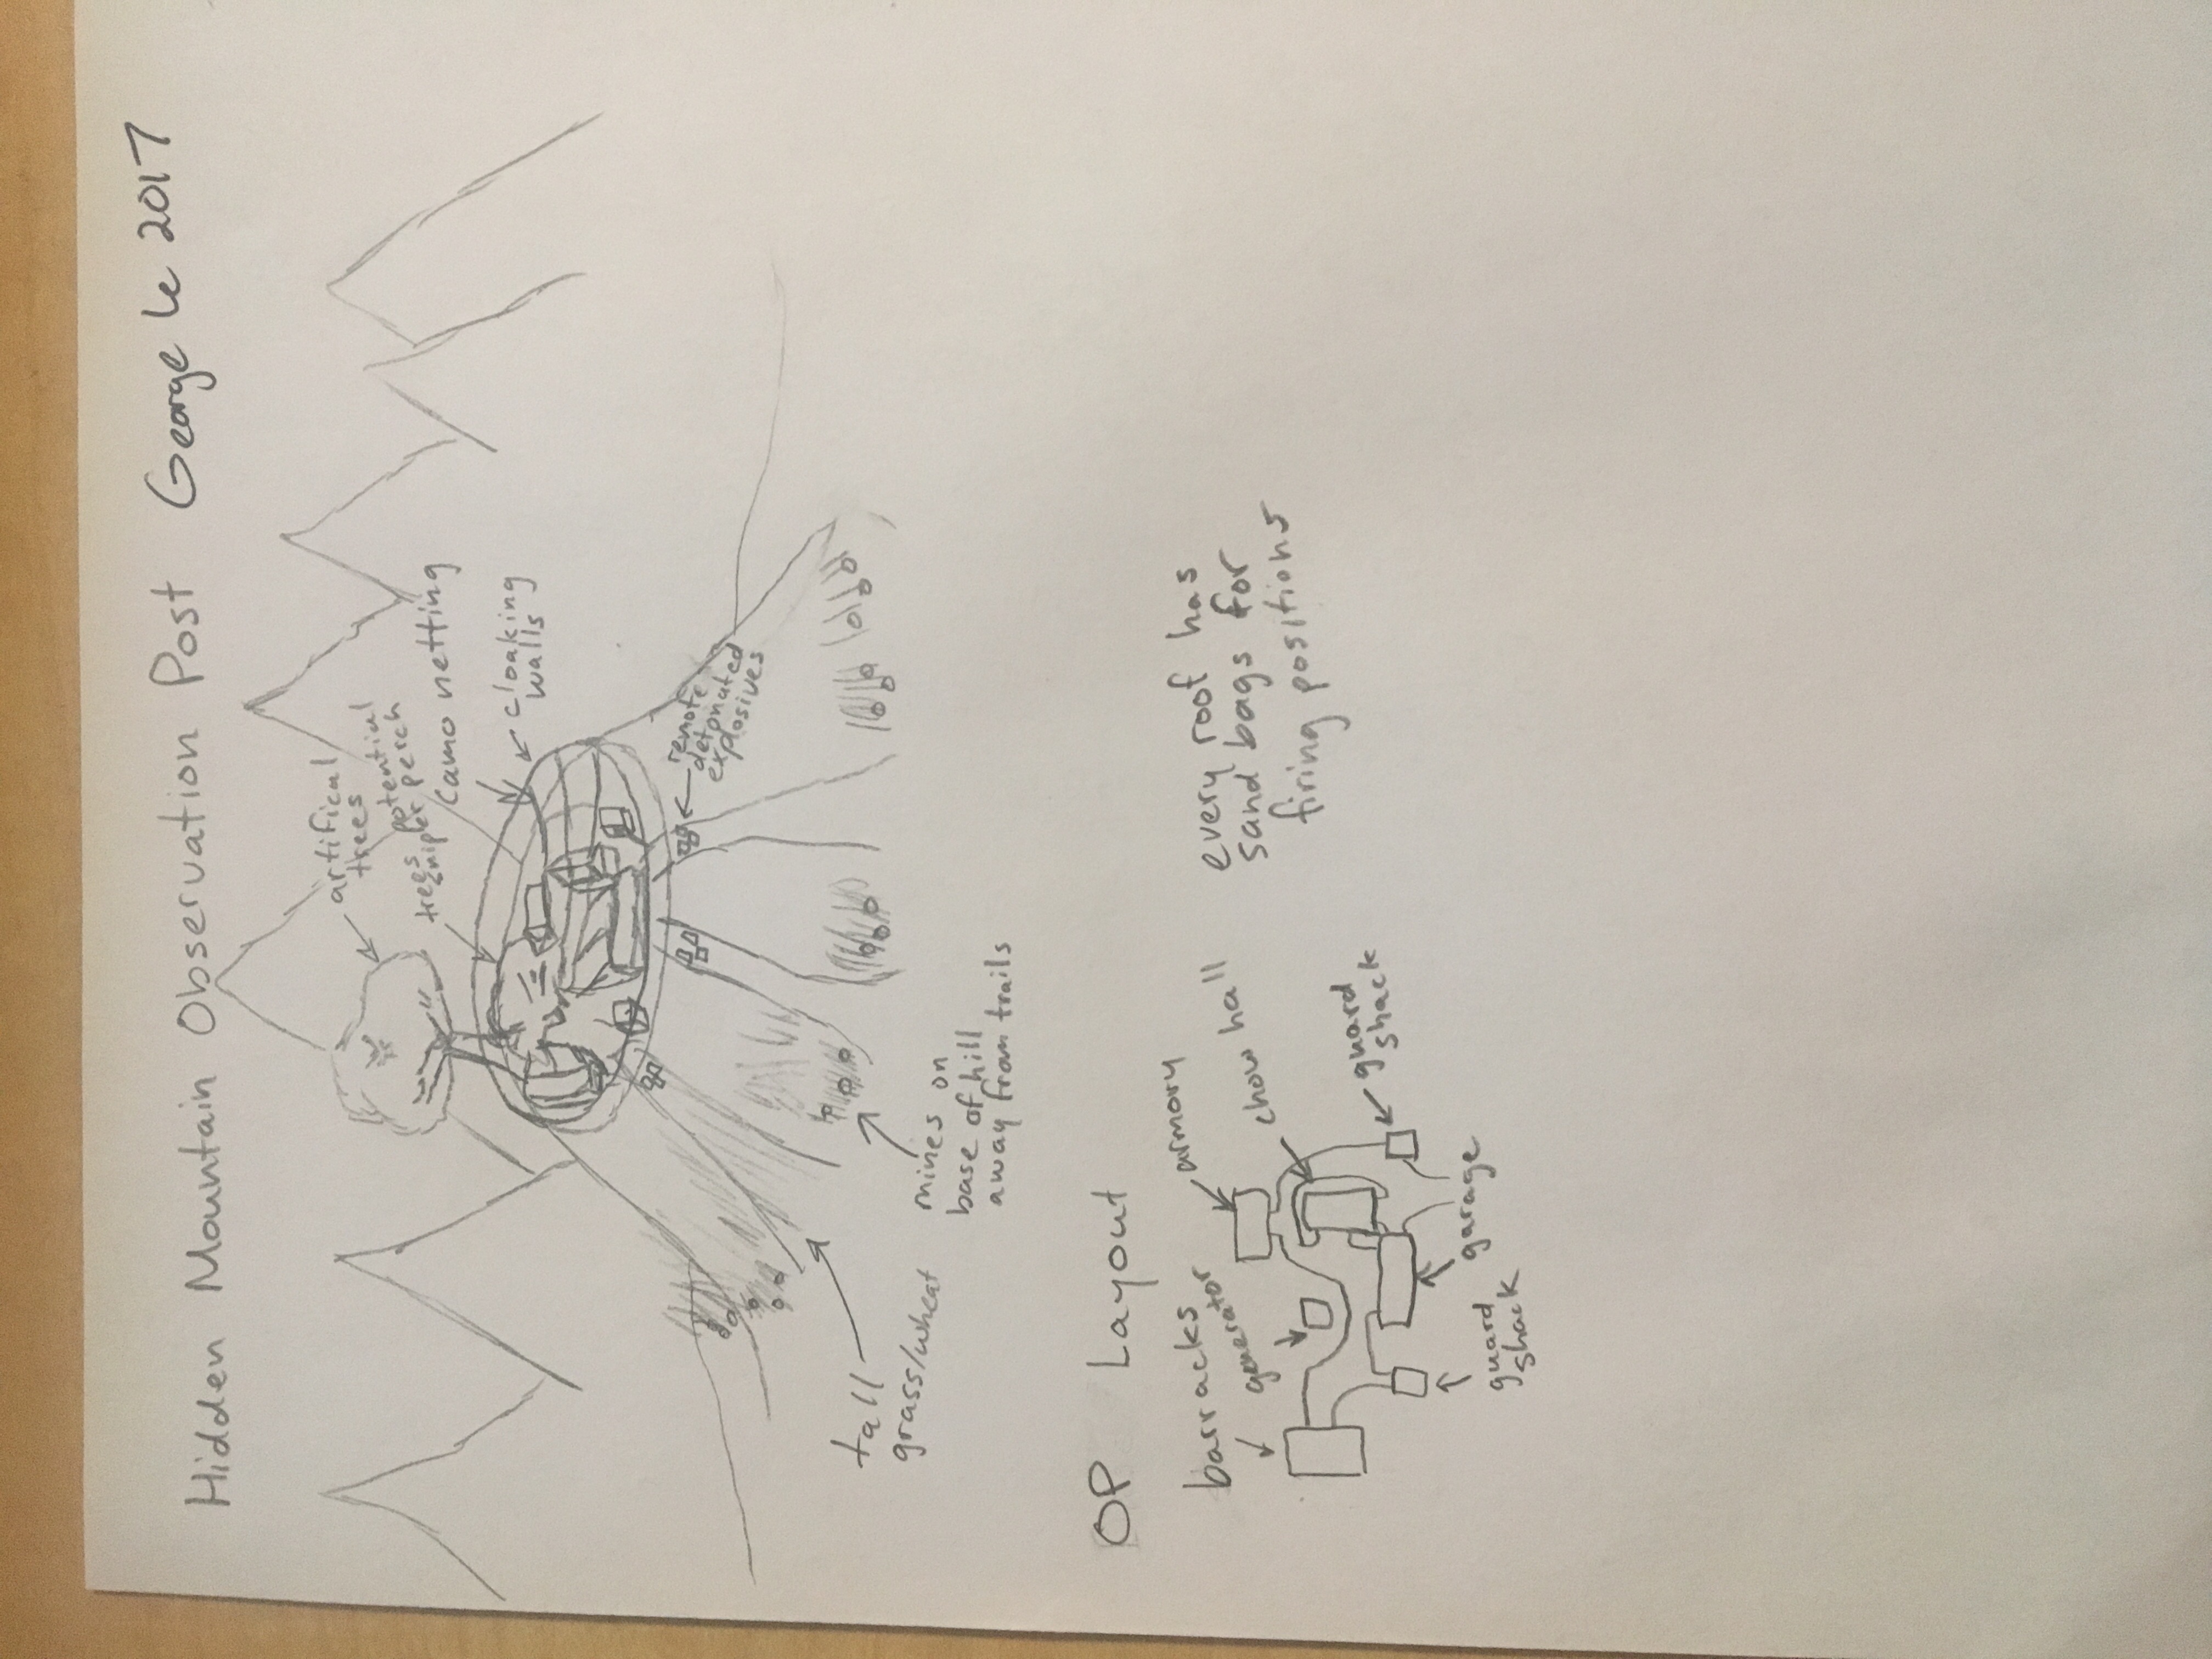 Hidden Mountain Observation Post George Le 2017
artifical
trees
trees potential
sniper perch
camo netting
cloaking
walls
remote
detonated
explosives
tall
grass/wheat
mines on
base of hill
away from trails
OP Layout
barracks
generator
armory
chow hall
guard
shack
garage
guard
shack
every roof has
sand bags for
firing positions